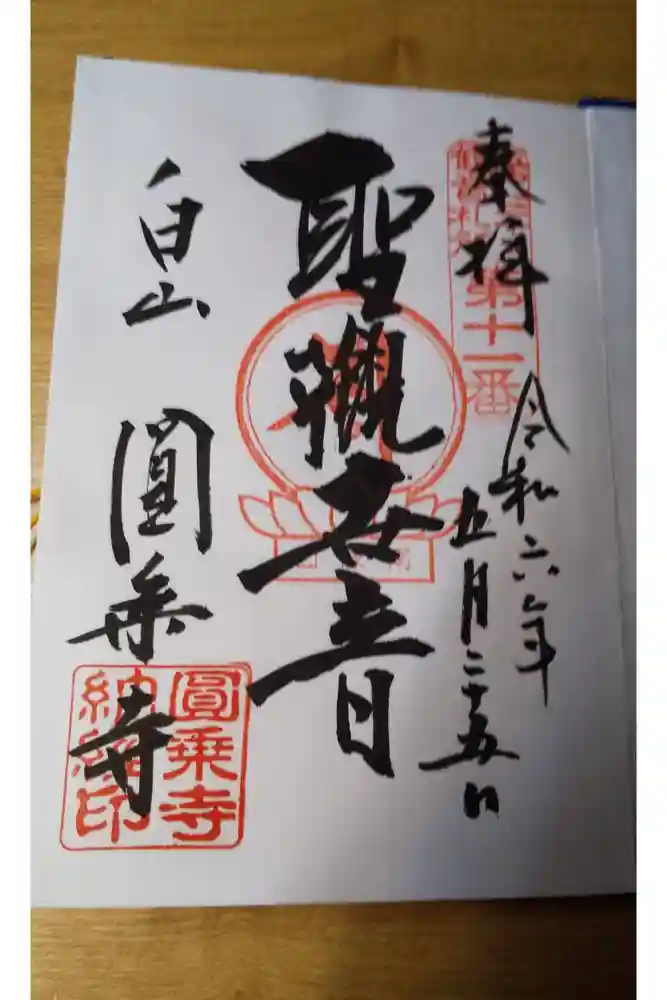 奉拝
令和六年
五月二十五日
第十一番
聖観世音
白山 圓乗寺
圓乗寺
納経印